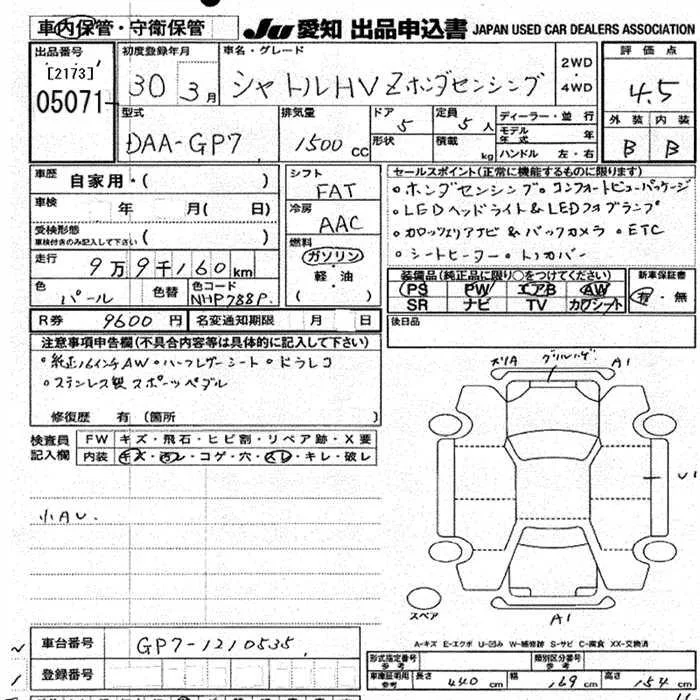 車内保管・守衛保管 JU 愛知 出品申込書 JAPAN USED CAR DEALERS ASSOCIATION
出品番号 初度登録年月 車名・グレード 評価点
[2173] 30 3月 シャトルHV Zホンダセンシング 2WD・4WD 4.5
05071
型式 排気量 ドア 定員 ディーラー・並行 外装 内装
DAA-GP7 1500cc 5 5人 モデル年式 年 B B
形状 積載 kg ハンドル 左・右
車歴 自家用・( ) シフト セールスポイント(正常に機能するものに限ります)
FAT ・ホンダセンシング・コンフォートビューパッケージ
車検 年 月( 日) 冷房 ・LEDヘッドライト&LEDフォグランプ
受検形態 AAC ・カロッツェリアナビ&バックカメラ・ETC
車検付きのみ記入して下さい ( ) 燃料 ・シートヒーター・トノカバー
走行 9万9千160km ガソリン 装備品(純正品に限り○をつけてください) 新車保証書
色 パール 色替 色コード NHP788P 軽・油 PS PW エアB AW 有・無
( ) SR ナビ TV カワシート
R券 9600円 名変通知期限 月 日 後日品
注意事項申告欄(不具合内容等は具体的に記入して下さい)
・純正16インチAW・ハーフレザーシート・ドラレコ
・ステンレス製スポーツペダル
修復歴 有 (箇所 )
検査員記入欄 FW キズ・飛石・ヒビ割・リペア跡・X要
内装 キズ・汚レ・コゲ・穴・スレ・キレ・破レ
スリA グリルハゲ A1
U1
小AU.
スペア A1
車台番号 GP7-1210535
A-キズ E-エクボ U-凹み W-補修跡 S-サビ C-腐食 XX-交換済
登録番号 形式指定番号 参考 類別区分番号 参考
車庫証明用参考 長さ 440cm 幅 169cm 高さ 154cm